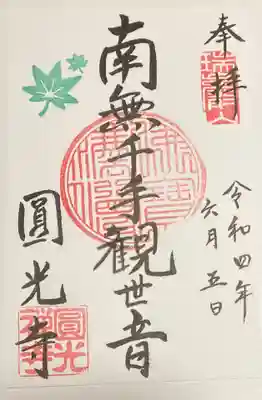 奉拝
瑞巌山
令和四年
六月五日
南無千手観世音
圓光寺
圓光寺